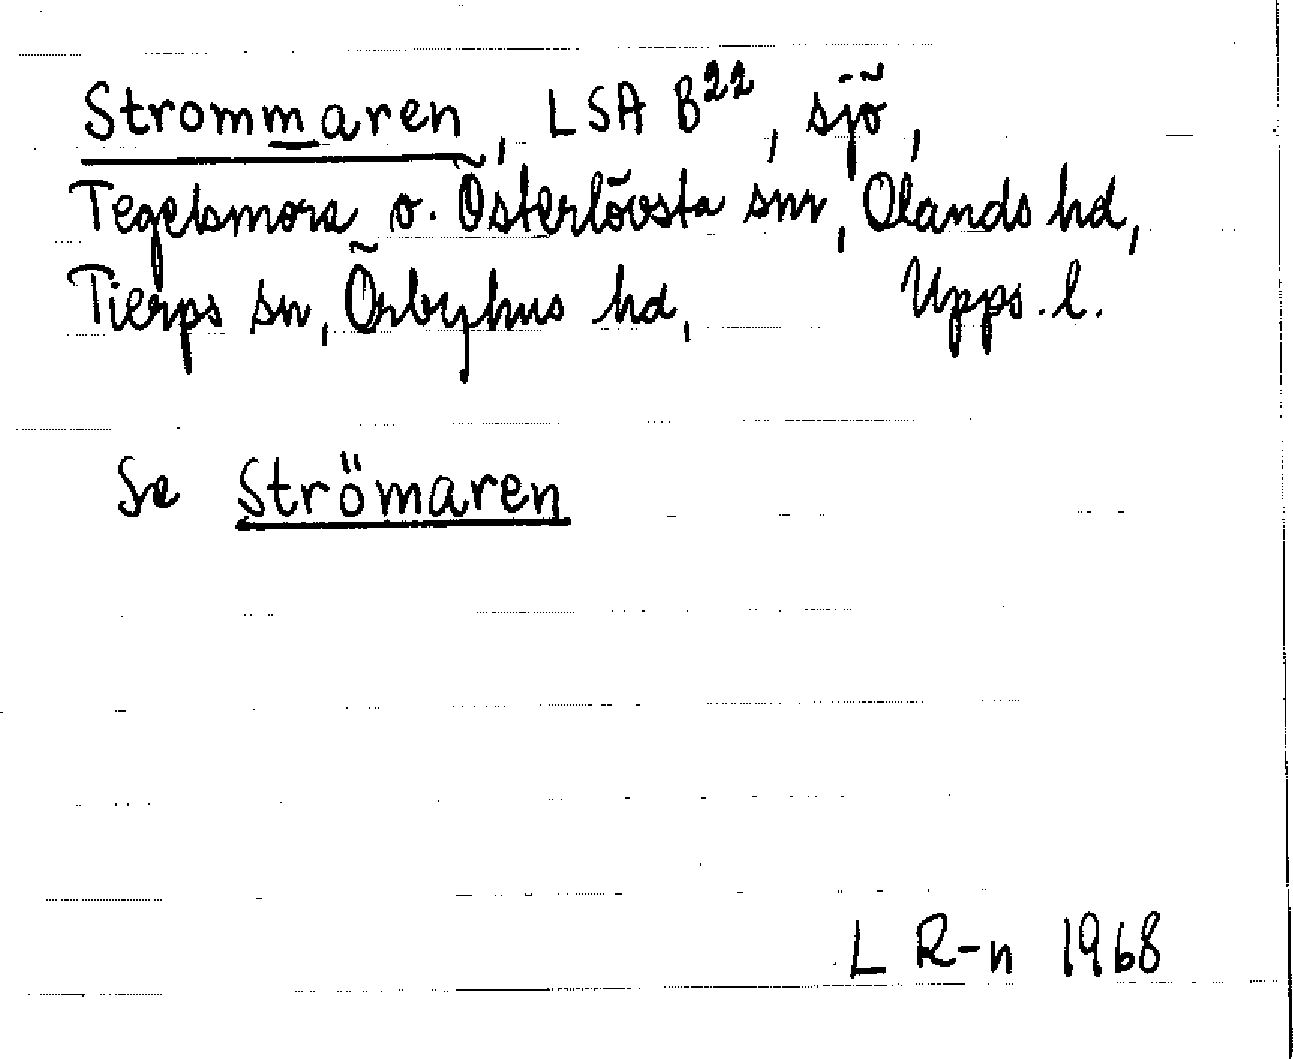 Strommaren, LSA B²², sjö,
Tegelsmora o. Österlövsta snr, Olands hd,
Tierps sn, Örbyhus hd, Upps. l.
Se Strömaren
L R-n 1968